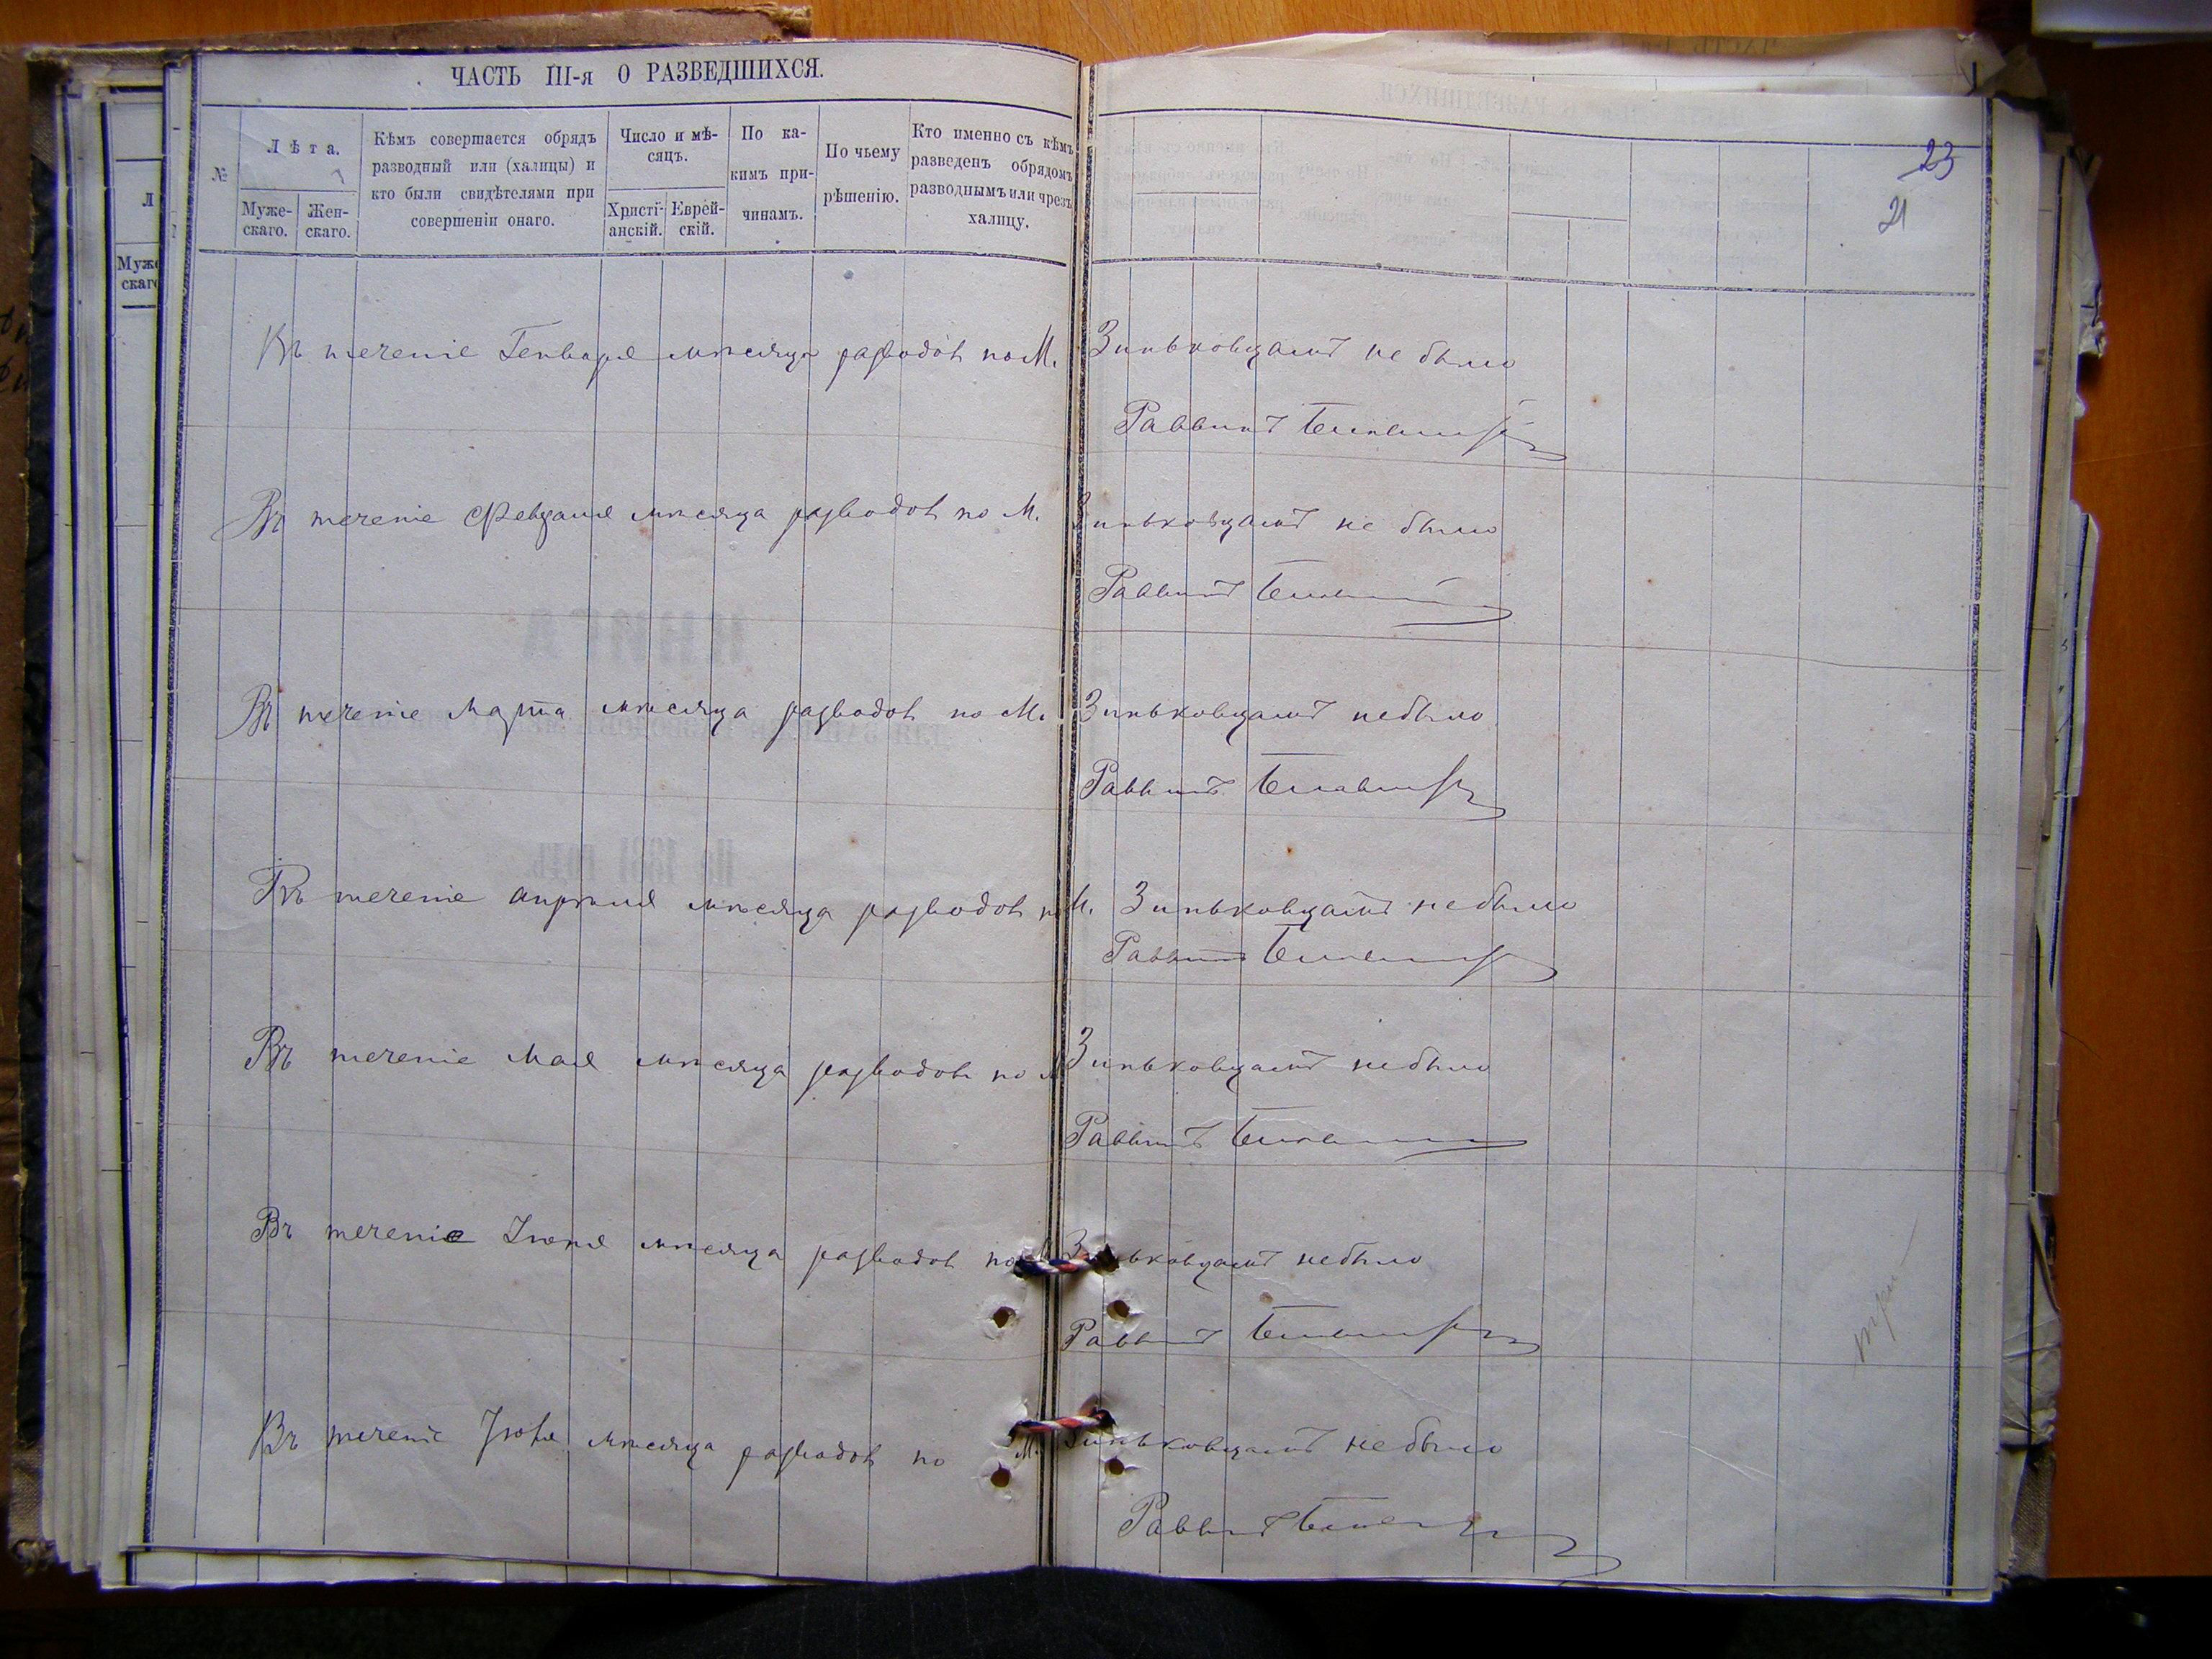 ЧАСТЬ III-я О РАЗВЕДШИХСЯ.
№
Лѣта.
Муже-
скаго.
Жен-
скаго.
Кѣмъ совершается обрядъ
разводный или (халицы) и
кто были свидѣтелями при
совершеніи онаго.
Число и мѣ-
сяцъ.
Христі-
анскій.
Еврей-
скій.
По ка-
кимъ при-
чинамъ.
По чьему
рѣшенію.
Кто именно съ кѣмъ
разведенъ обрядомъ
разводнымъ или чрезъ
халицу.
23
21
Муже
скаго
Въ теченіе Генваря мѣсяца разводовъ по М. Зиньковцамъ не было
Раввинъ
Въ теченіе Февраля мѣсяца разводовъ по М. Зиньковцамъ не было
Раввинъ
Въ теченіе Марта мѣсяца разводовъ по М. Зиньковцамъ не было
Раввинъ
Въ теченіе апрѣля мѣсяца разводовъ по М. Зиньковцамъ не было
Раввинъ
Въ теченіе Мая мѣсяца разводовъ по М Зиньковцамъ не было
Раввинъ
Въ теченіе Іюня мѣсяца разводовъ по М Зиньковцамъ не было
Раввинъ
Въ теченіе Іюля мѣсяца разводовъ по М. Зиньковцамъ не было
Раввинъ